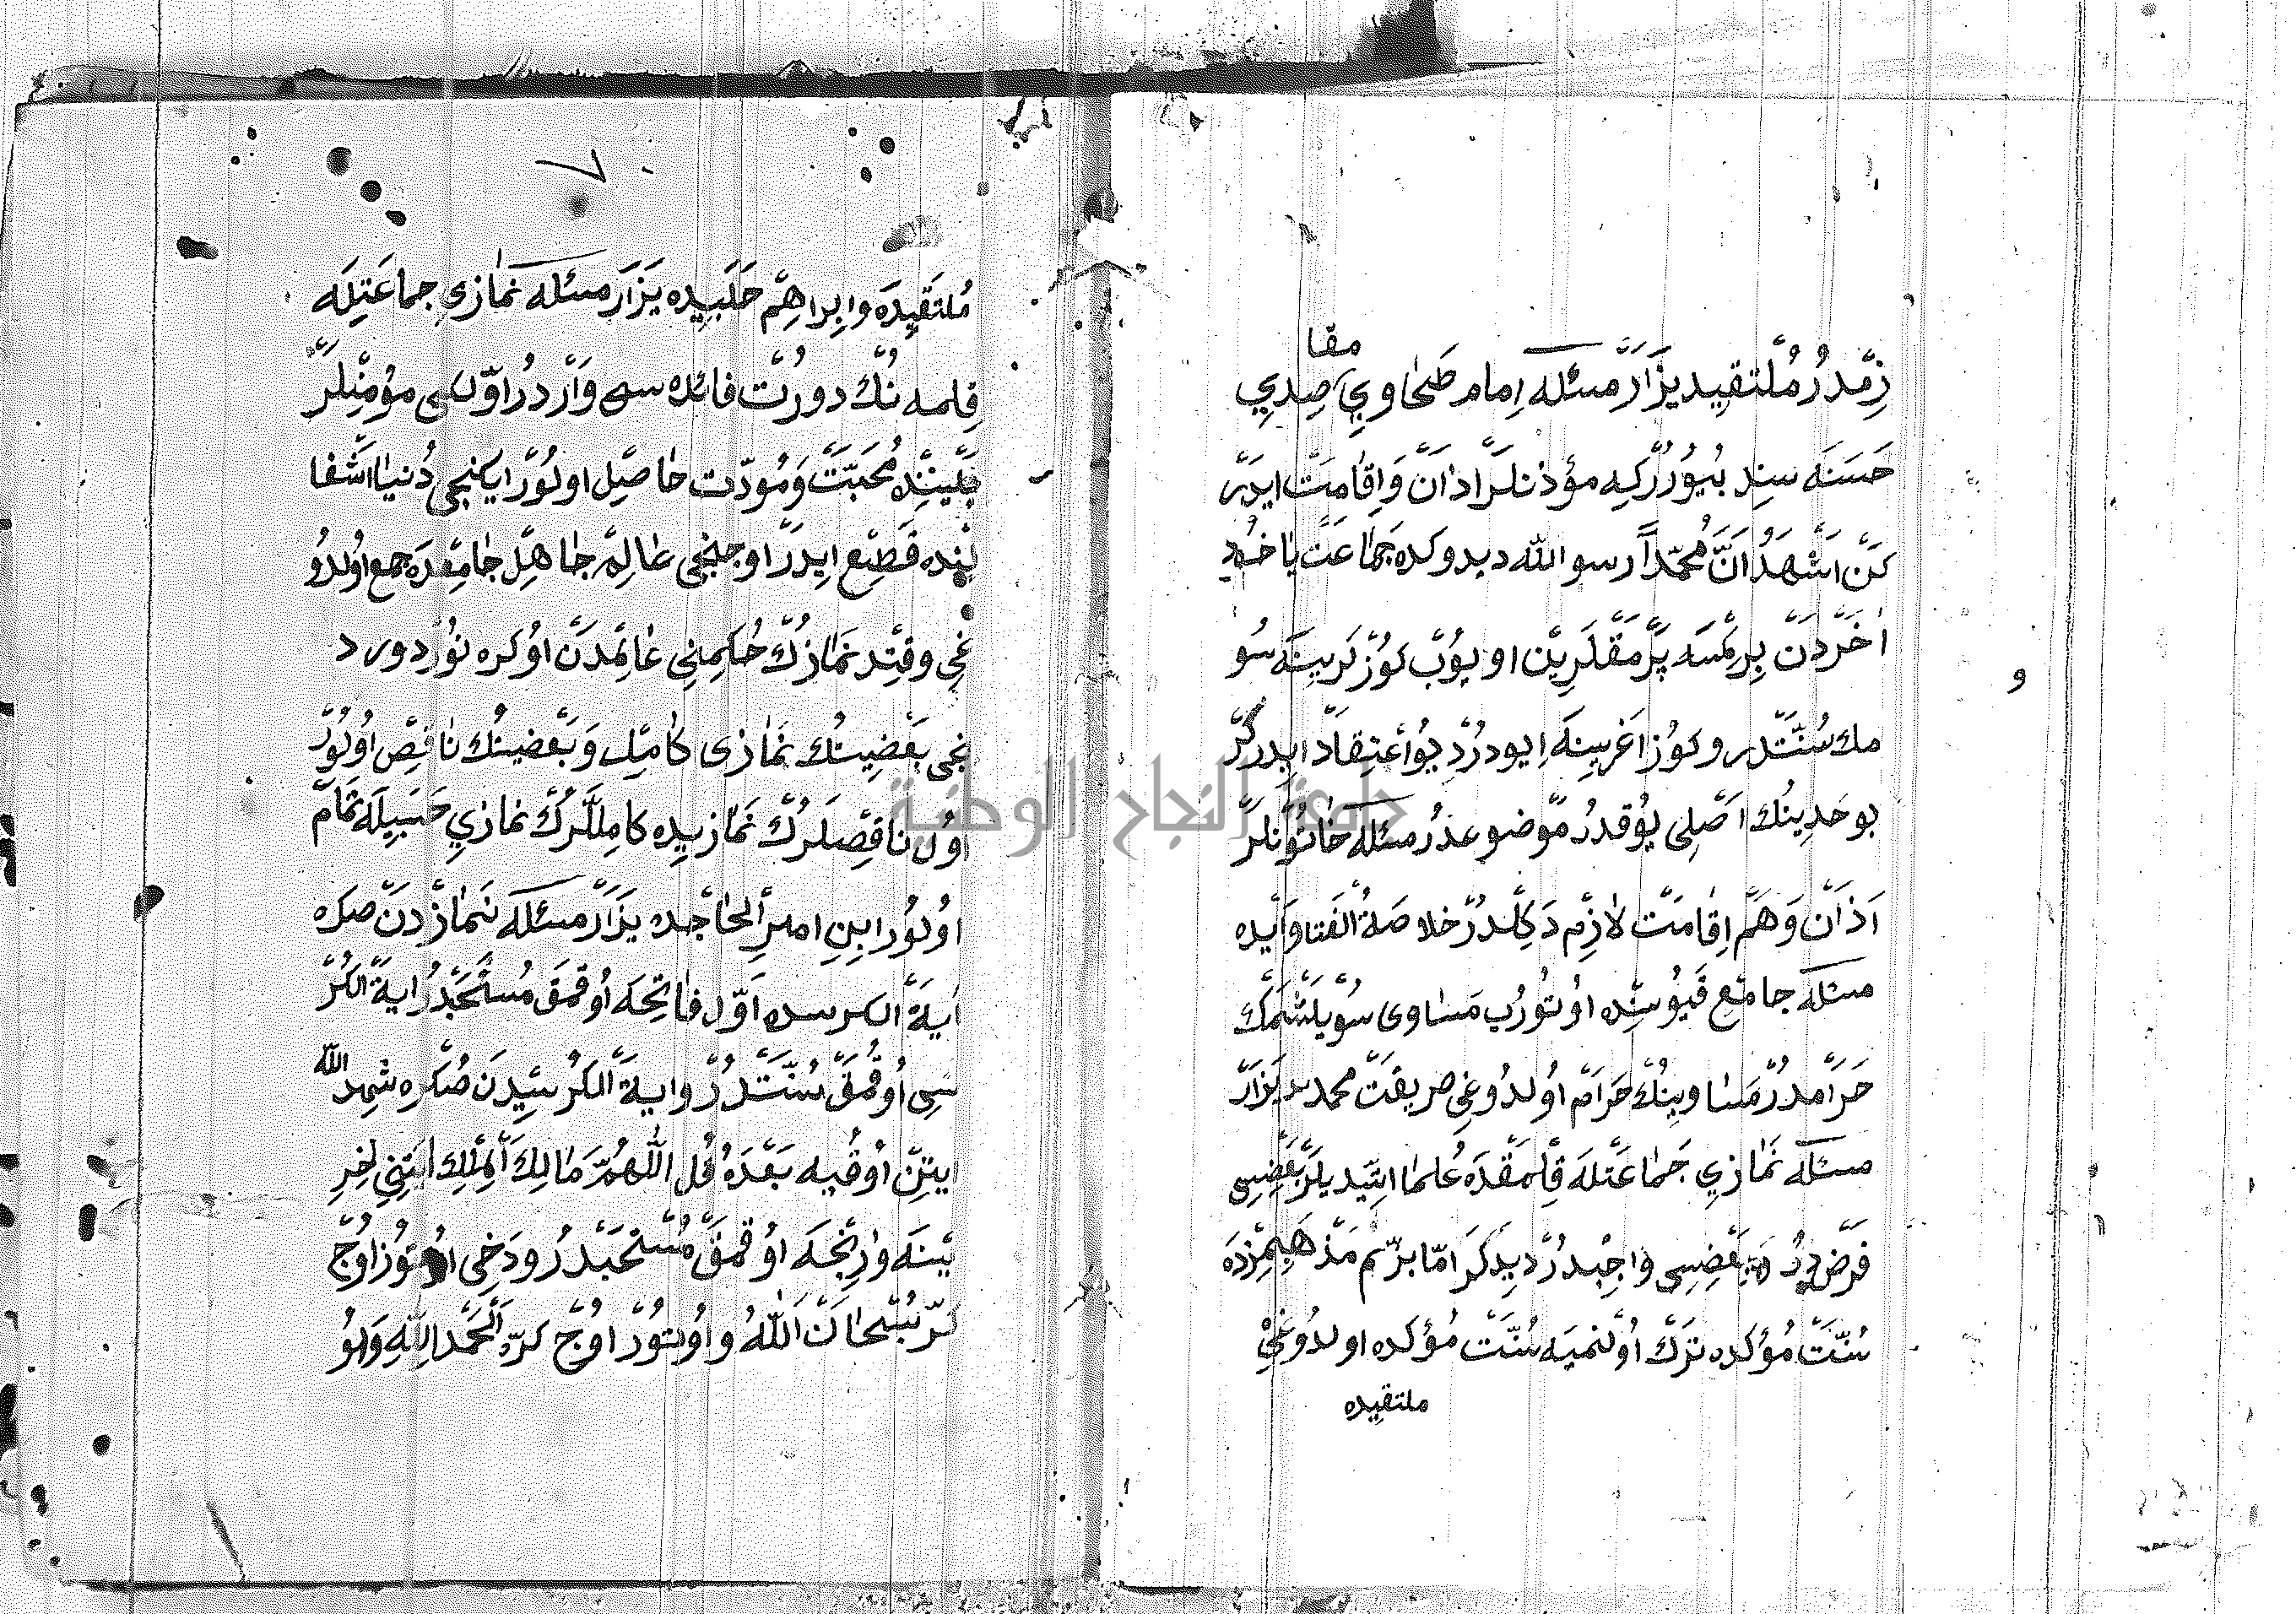 مقا
زِمْدُرْ مُلْتقيد يزَارْ مسئله اِمام طَحَاوِي صِدِي
حَسَنَه سنِد بُيُورُرْكِه مؤذنلرْ اذانْ وَاِقَامَتْ ايدَرْ
كَنْ اشْهَدُ اَنَّ مُحَمّداً رسو الله ديدوكده جَمَاعَتْ يَا خُودِ
اٰخَرْدَنْ بِرِكمْسَه پَرْمَقْلَرِينْ اوپوُبْ كوُزْلَرِينَه سُو
مك سُنّتْدر وكوُز اغرِيسِنَه اِيودُرْ ديوُ اعْتِقادْ ايدرلَرْ
بو حَدِيثُك اصْلِى يوُقدُرْ موْضوعدُرْ مسئله خَاتُونلَرْ
اَذانْ وَهَمْ اِقامَتْ لازِمْ دَكِلْدُرْ خلاصَةُ الْفَتاوَايْده
مسئله جامعْ قَپُوسِنْده اوُتوُرُب مَسَاوى سُوْيلَشْمَكْ
حَرَامدُرْ مَسَاوينُكْ حَرَامْ اوُلدُوغِى طريقَتْ محمديه يزَارْ
مسئله نَمَازِي جَمَاعَتْلَه قِلْمَقْدَه عُلما اتِّيديلَرْ بَعْضِسِى
فَرْضْدُرْ بَعْضِسِى وَاجِبْدُرْ ديدِلَر امّا بزِم مَذْهَبِمِزدَه
سُنّتْ مُؤكده تَرْك اوُلنميَه سُنّتْ مُؤكده اولدُوغِى
ملتقيده
مُلتقيدَه وابراهِمْ حَلَبيده يَزَارْ مسئله نَمازي جماعَتِلَه
قِلمه نُكْ دورْت فائده سى وَارْدُرْ اوّلكى مؤمنِلرْ
بَيْنِنْده مُحَبَّتْ وَمُوَدّتْ حَاصِلْ اولُوْر ايكنجى دُنيَا اشْغا
لِنْده قَطِعْ ايدَرْ اوچنجى عَالِمْ جَاهِلْ جَامِعْدَه جمع اوُلدُو
غِي وقتِد نَمَازُكْ حُكمِنِى عَالِمْدَنْ اوُكره نوُر دورد
نجى بعْضِينُك نَمَازى كَامِل وَبَعْضينُك نَاقِصْ اوُلوُرْ
اوُل ناقِصلَرُكْ نَمازيِده كامِللَرُكْ نمازي حَسَبِيلَه تَمَامْ
اوُلوُر ابنِ اميرِ الحَاجده يزَارْ مسئله نَمَازْدَنْ صكره
ايَةَ الكرسده اَوّل فاتِحَه اوُقمَقْ مُسْتَحَبْدُرْ ايةَ الكُرْ
سِى اوُقُمَقْ سُنّتْدُرْ وايةَ الكُرْسيِدِنَ صُكْره شهِدالله
ايتِنْ اوُقيه بَعْدَهُ قُلِ اللّهُمَّ مَالِكَ الْمُلْكِ ايَتِنِي اٰخِرِ
يِنَه وَارِنْجَه اوُقمَقْ مُسْتَحَبْدُرْ ودَخِى اوُتوُز اوُچْ
كَرّ سُبْحَانَ اَللهُ واوُتوُرْ اوُچْ كرّ اَلْحَمْدُ الِلّهِ وَاوُ